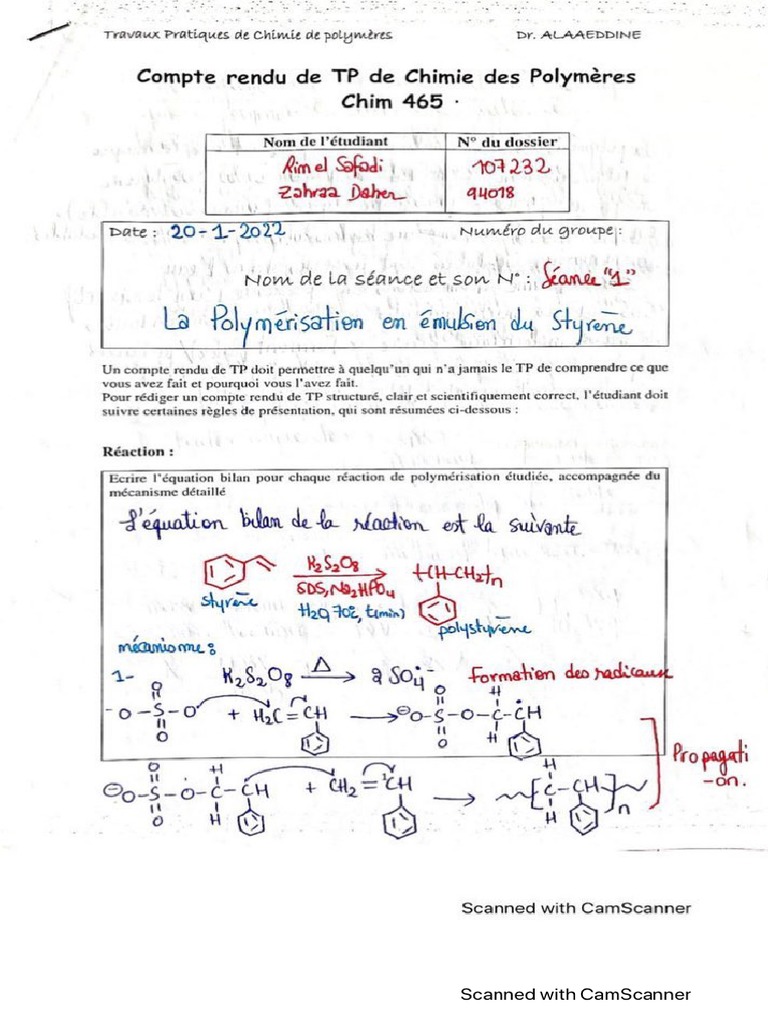 Travaux Pratiques de Chimie de polymères Dr. ALAAEDDINE
Compte rendu de TP de Chimie des Polymères
Chim 465
Nom de l'étudiant N° du dossier
Rim el Safadi 107232
Zahraa Daher 94018
Date : 20-1-2022 Numéro du groupe :
Nom de la séance et son N° : Séance "1"
La Polymérisation en émulsion du Styrène
Un compte rendu de TP doit permettre à quelqu'un qui n'a jamais le TP de comprendre ce que
vous avez fait et pourquoi vous l'avez fait.
Pour rédiger un compte rendu de TP structuré, clair et scientifiquement correct, l'étudiant doit
suivre certaines règles de présentation, qui sont résumées ci-dessous :
Réaction :
Ecrire l'équation bilan pour chaque réaction de polymérisation étudiée, accompagnée du
mécanisme détaillé
L'équation bilan de la réaction est la suivante
K2S2O8
SDS, Na2HPO4
H2O, 70c, t(min)
+(CH-CH2)n
styrène
polystyrène
mécanisme :
1- K2S2O8 Δ → 2 SO4•- Formation des radicaux
-O-S-O• + H2C=CH → ⊖O-S-O-C-ĊH
O O H
O O H
Propagati
-on.
⊖O-S-O-C-ĊH + CH2=CH → [C-CH]n
O H H
O H H
Scanned with CamScanner
Scanned with CamScanner